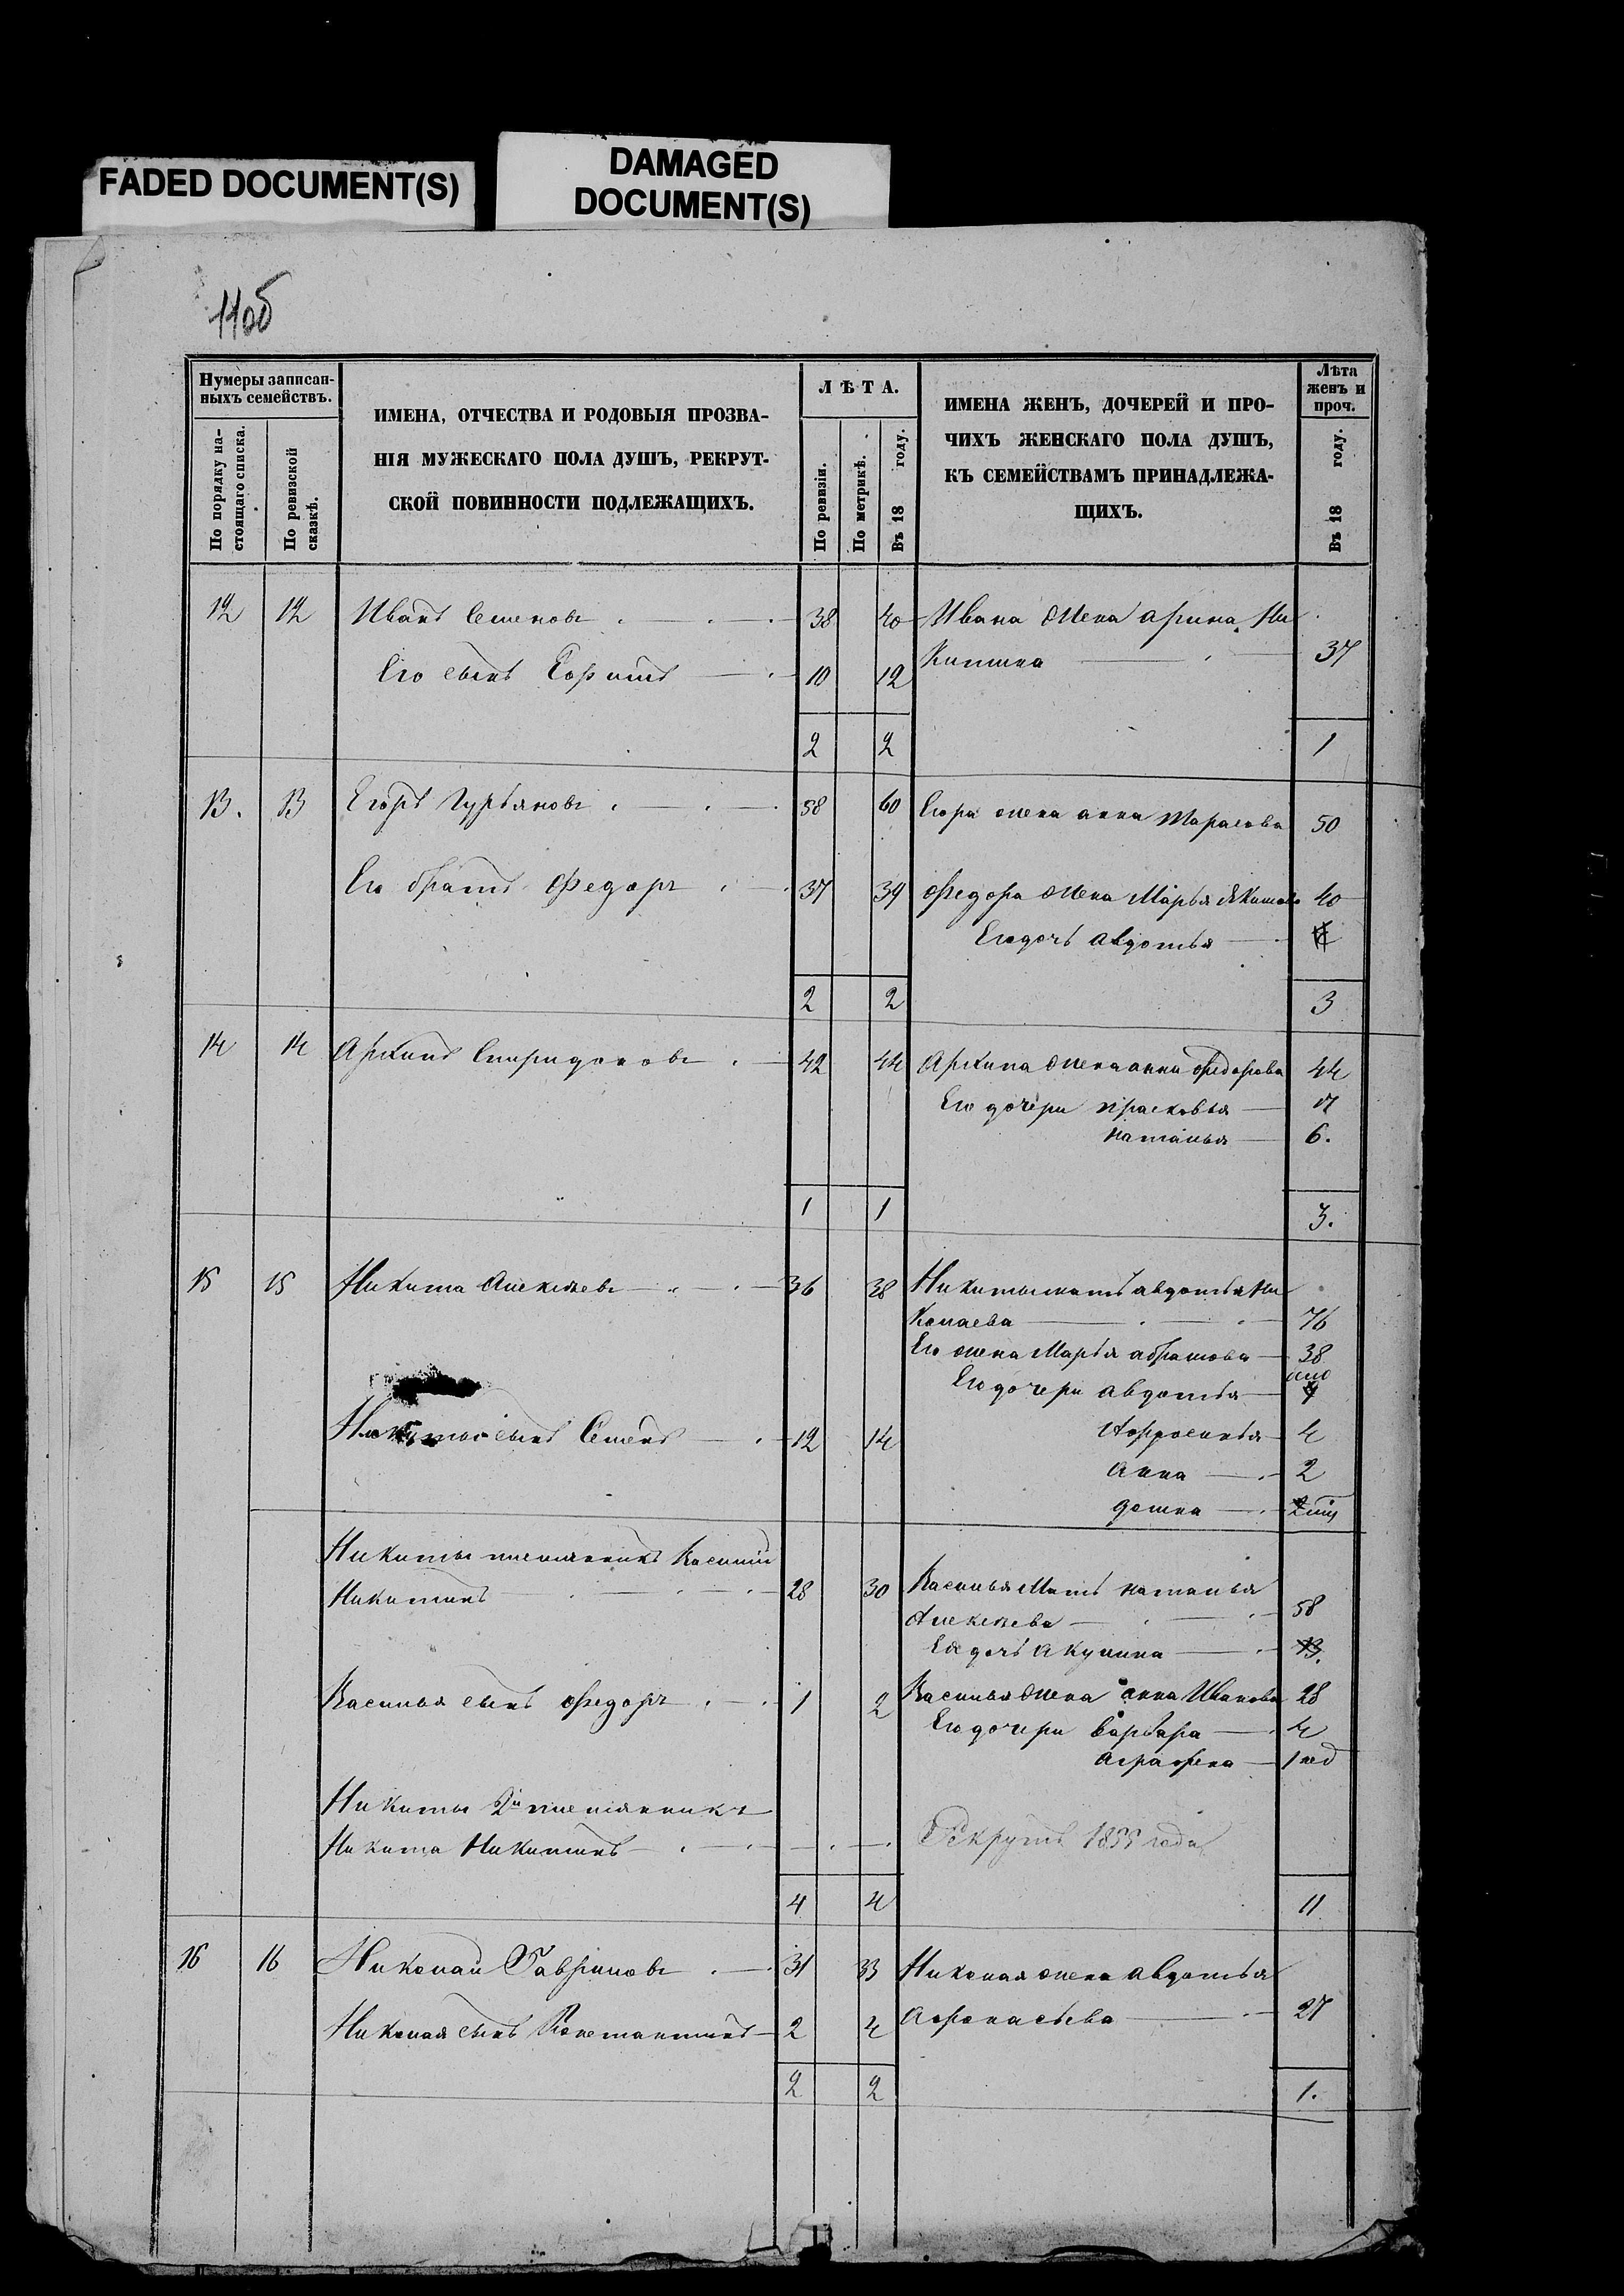 FADED DOCUMENT(S)
DAMAGED
DOCUMENT(S)
110б
Нумеры записан-
ныхъ семействъ.
По порядку на-
стоящаго списка.
По ревизской
сказкѣ.
ИМЕНА, ОТЧЕСТВА И РОДОВЫЯ ПРОЗВА-
НІЯ МУЖЕСКАГО ПОЛА ДУШЪ, РЕКРУТ-
СКОЙ ПОВИННОСТИ ПОДЛЕЖАЩИХЪ.
ЛѢТА.
По ревизіи.
По метрикѣ.
Въ 18 году.
ИМЕНА ЖЕНЪ, ДОЧЕРЕЙ И ПРО-
ЧИХЪ ЖЕНСКАГО ПОЛА ДУШЪ,
КЪ СЕМЕЙСТВАМЪ ПРИНАДЛЕЖА-
ЩИХЪ.
Лѣта
женъ и
проч.
Въ 18 году.
12 12 Иванъ Семеновъ 38 40 Ивана жена Арина Ни
китина 37
Его сынъ 10 12
2 2 1
13. 13 Егоръ Гурьяновъ 58 60 Егора жена анна Тарасова 50
Его братъ Федоръ 37 39 Федора жена Марья 40
Его дочь Авдотья
2 2 3
14 14 Архипъ Спиридоновъ 42 44 Архипа жена анна Федорова 44
Его дочери прасковья 17
наталья 6.
1 1 3.
15 15 Никита Алексѣевъ 36 38 Никиты мать авдотья Ни
колаева 76
Его жена Марья абрамова 38
Его дочери авдотья
Никиты сынъ Семенъ 12 14 Афросинья 4
Анна 2
домна
Никиты племянникъ Василий
Никитинъ 28 30 Василья Мать наталья
Алексѣева 58
Ея дочь Акулина 13.
Василья сынъ Федоръ 1 2 Василья жена анна Иванова 28
Его дочери Варвара 4
Аграфена
Никиты 2й племянникъ
Никита Никитинъ Рекрутъ 1855 года
4 4 11
16 16 Николай Гавриловъ 31 33 Николая жена авдотья
Афонасьева 27
Николая сынъ Константинъ 2 4
2 2 1.